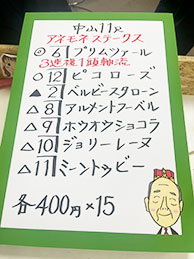 中山11R
アネモネステークス
◎6 プリムツァール
3連複1頭軸流
○12 ピコローズ
▲2 ベルビースタローン
△8 アルメントフーベル
△9 ホウオウショコラ
△10 ジョリーレーヌ
△11 ミントゥビー
各400円×15